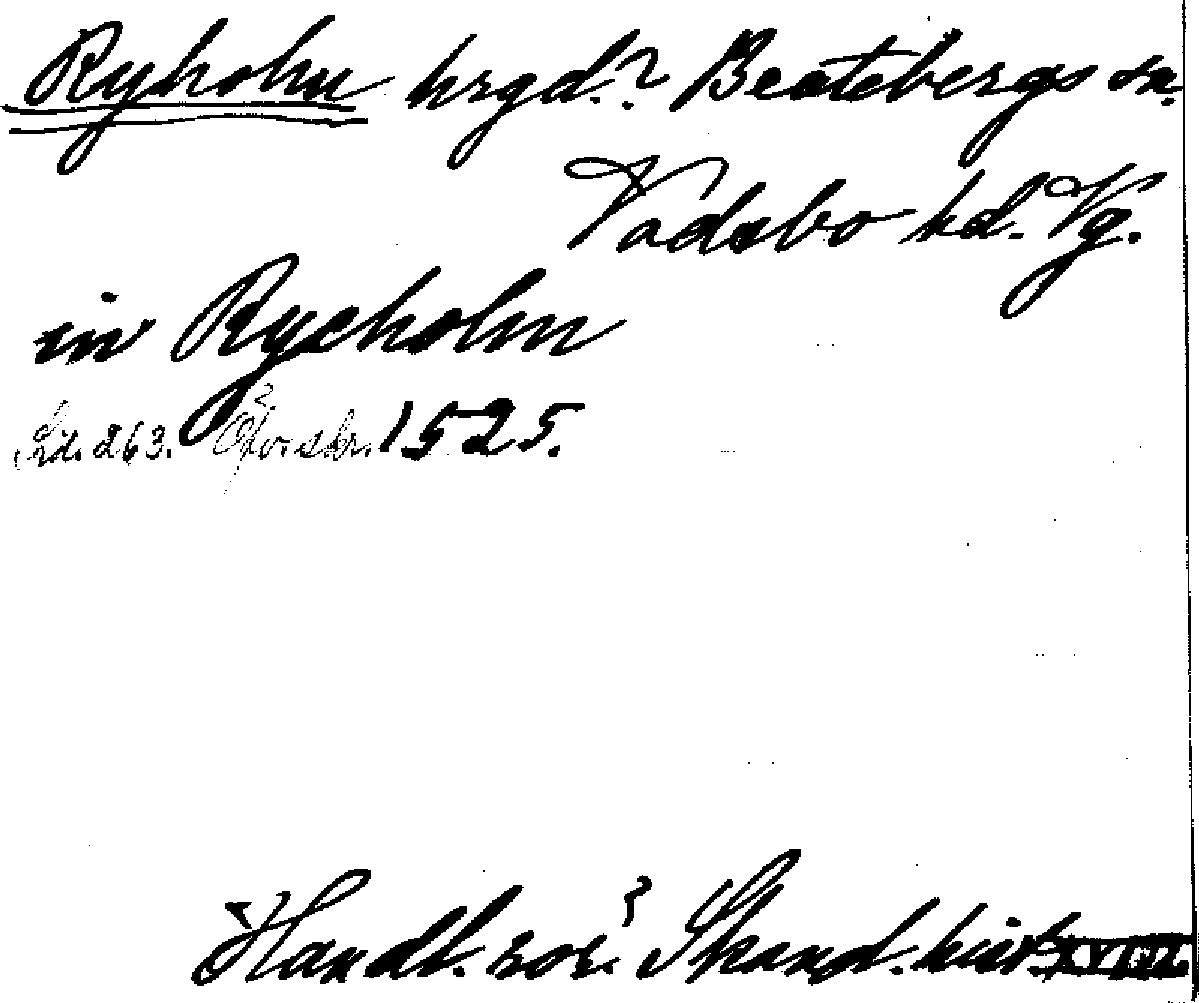 Ryholm hrgd.? Beatebergs sn.
Vadsbo hd. Vg.
in Rycholm
Sid. 263. Afskr. 1525.
Handl. rör. Skand. hist. XVIII.